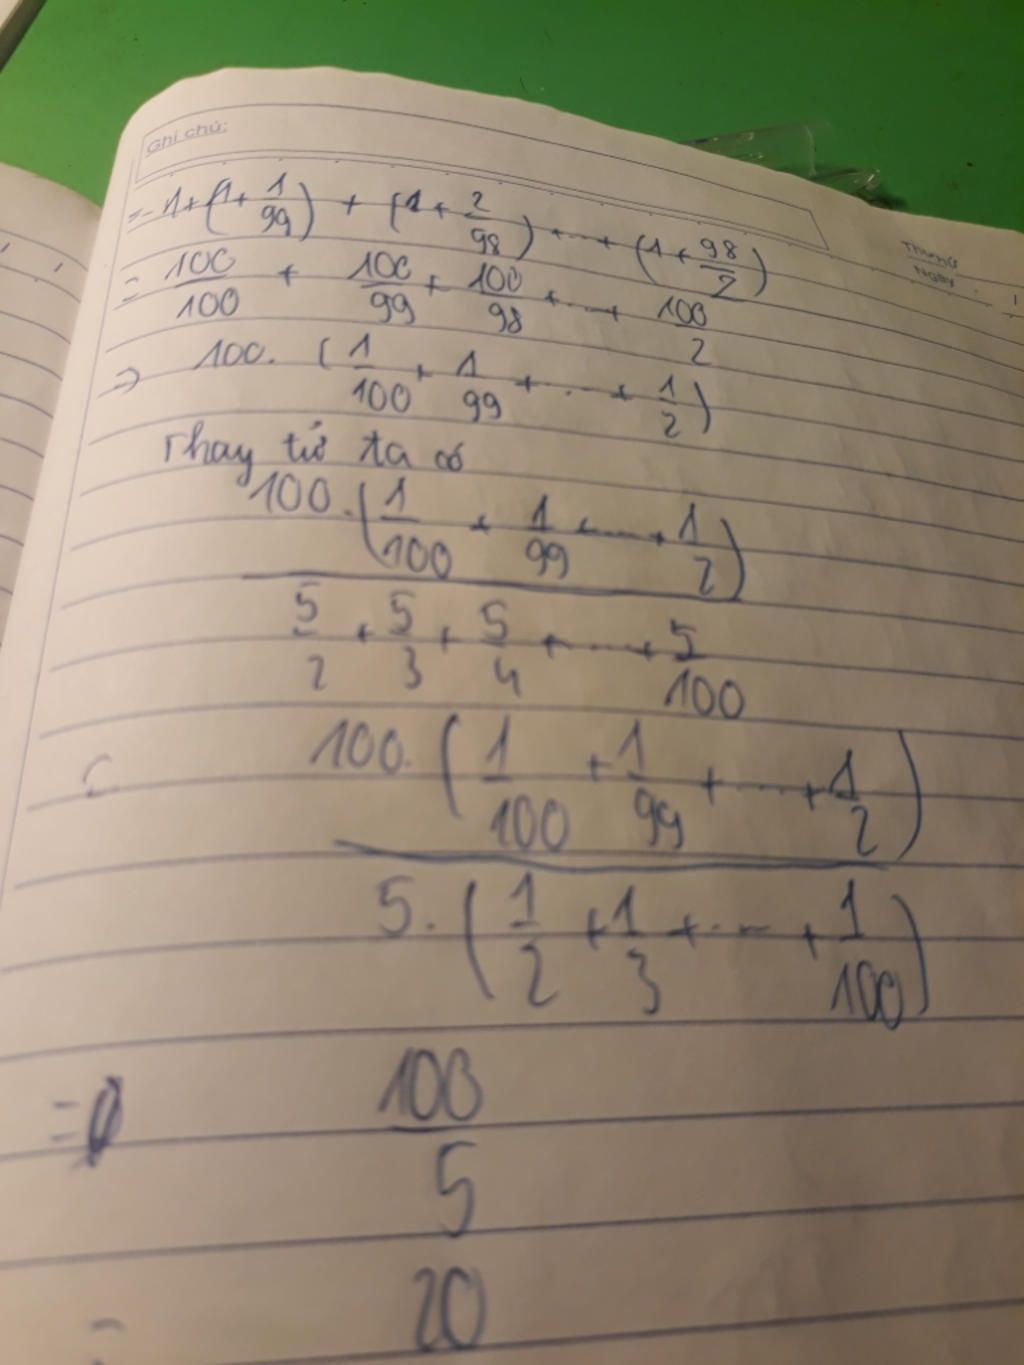 Ghi chú:
Thứ
Ngày
= 1 + (1 + 1/99) + (1 + 2/98) + ... + (1 + 98/2)
= 100/100 + 100/99 + 100/98 + ... + 100/2
=> 100. (1/100 + 1/99 + ... + 1/2)
Thay tử ta có
100. (1/100 + 1/99 + ... + 1/2)
5/2 + 5/3 + 5/4 + ... + 5/100
100. (1/100 + 1/99 + ... + 1/2)
5. (1/2 + 1/3 + ... + 1/100)
= 100/5
= 20